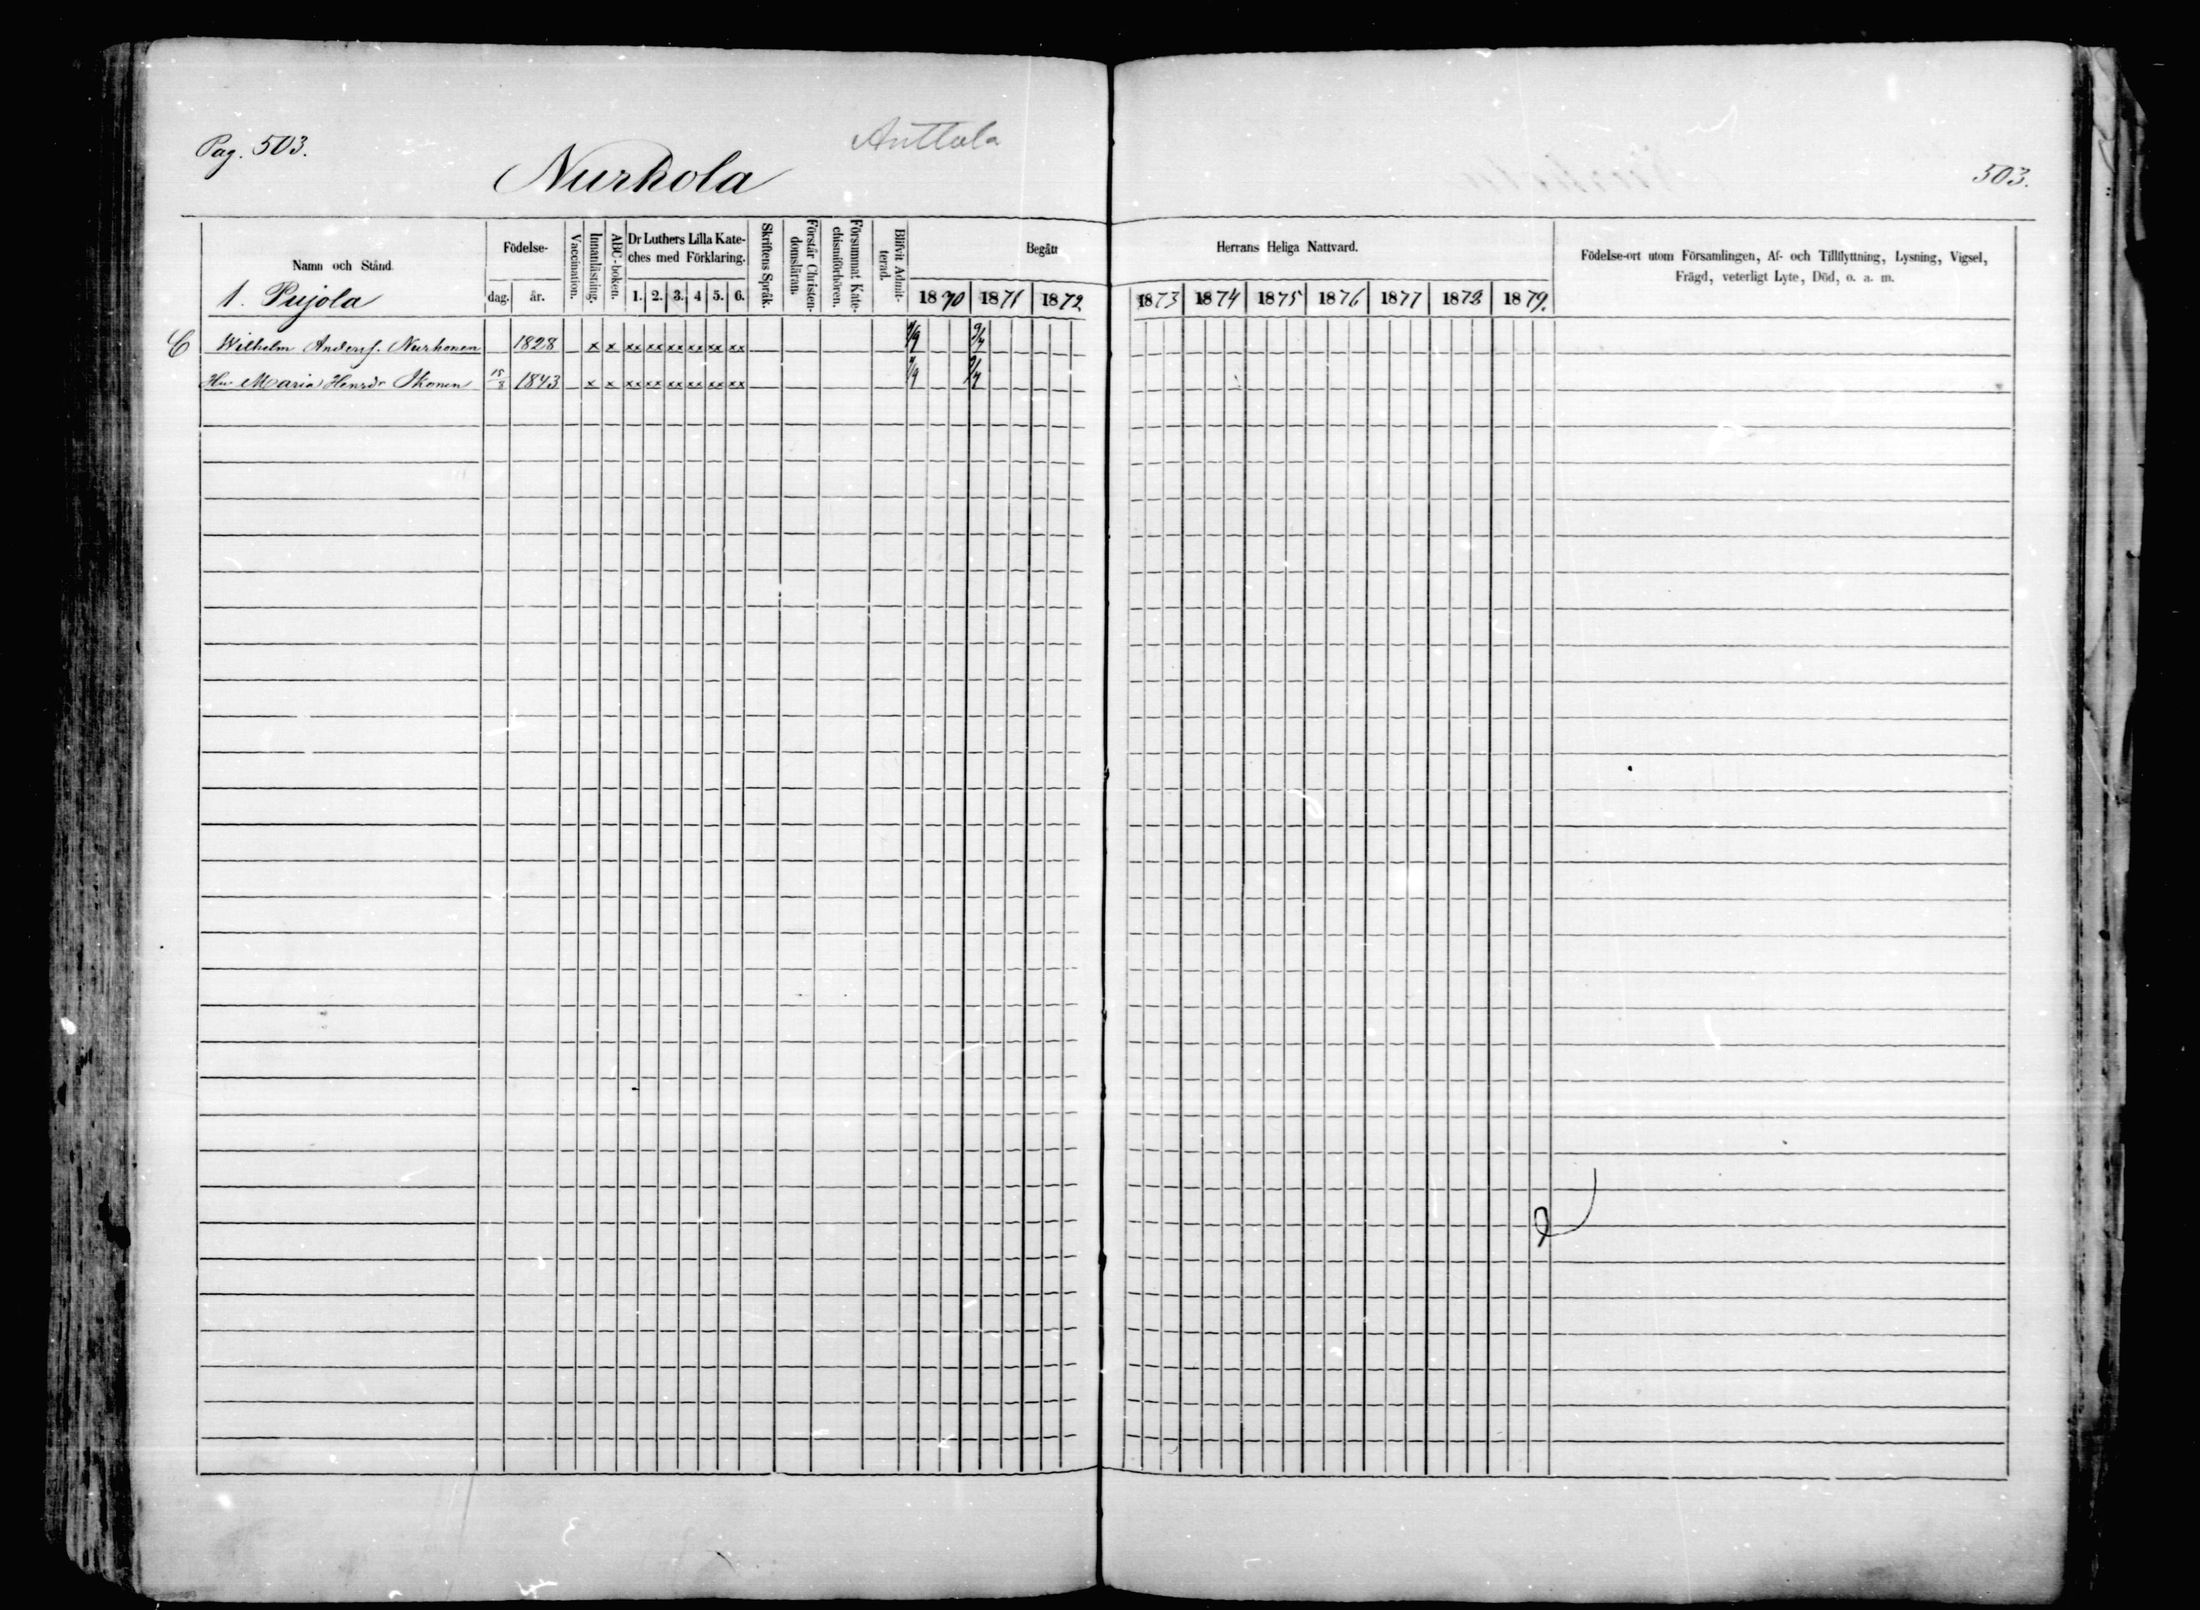 Pag. 503.
Anttola
Nurkola
503.
Namn och Stånd.
Födelse-
dag.
år.
Vaccination.
Innanläsning.
ABC-boken.
Dr Luthers Lilla Kate-
ches med Förklaring.
1. 2. 3. 4 5. 6.
Skriftens Språk.
Förstår Christen-
domsläran.
Försummat Kate-
chismiförhören.
Blifvit Admit-
terad.
Begått
Herrans Heliga Nattvard.
1870 1871 1872
1873 1874 1875 1876 1877 1878 1879.
Födelse-ort utom Församlingen, Af- och Tillflyttning, Lysning, Vigsel,
Frägd, veterligt Lyte, Död, o. a. m.
1. Pujola
C Wilhelm Andersf. Nurhonen 1828 x x xx xx xx xx xx xx
Hu Maria Hensdr Ikonen 15/8 1843 x x xx xx xx xx xx xx